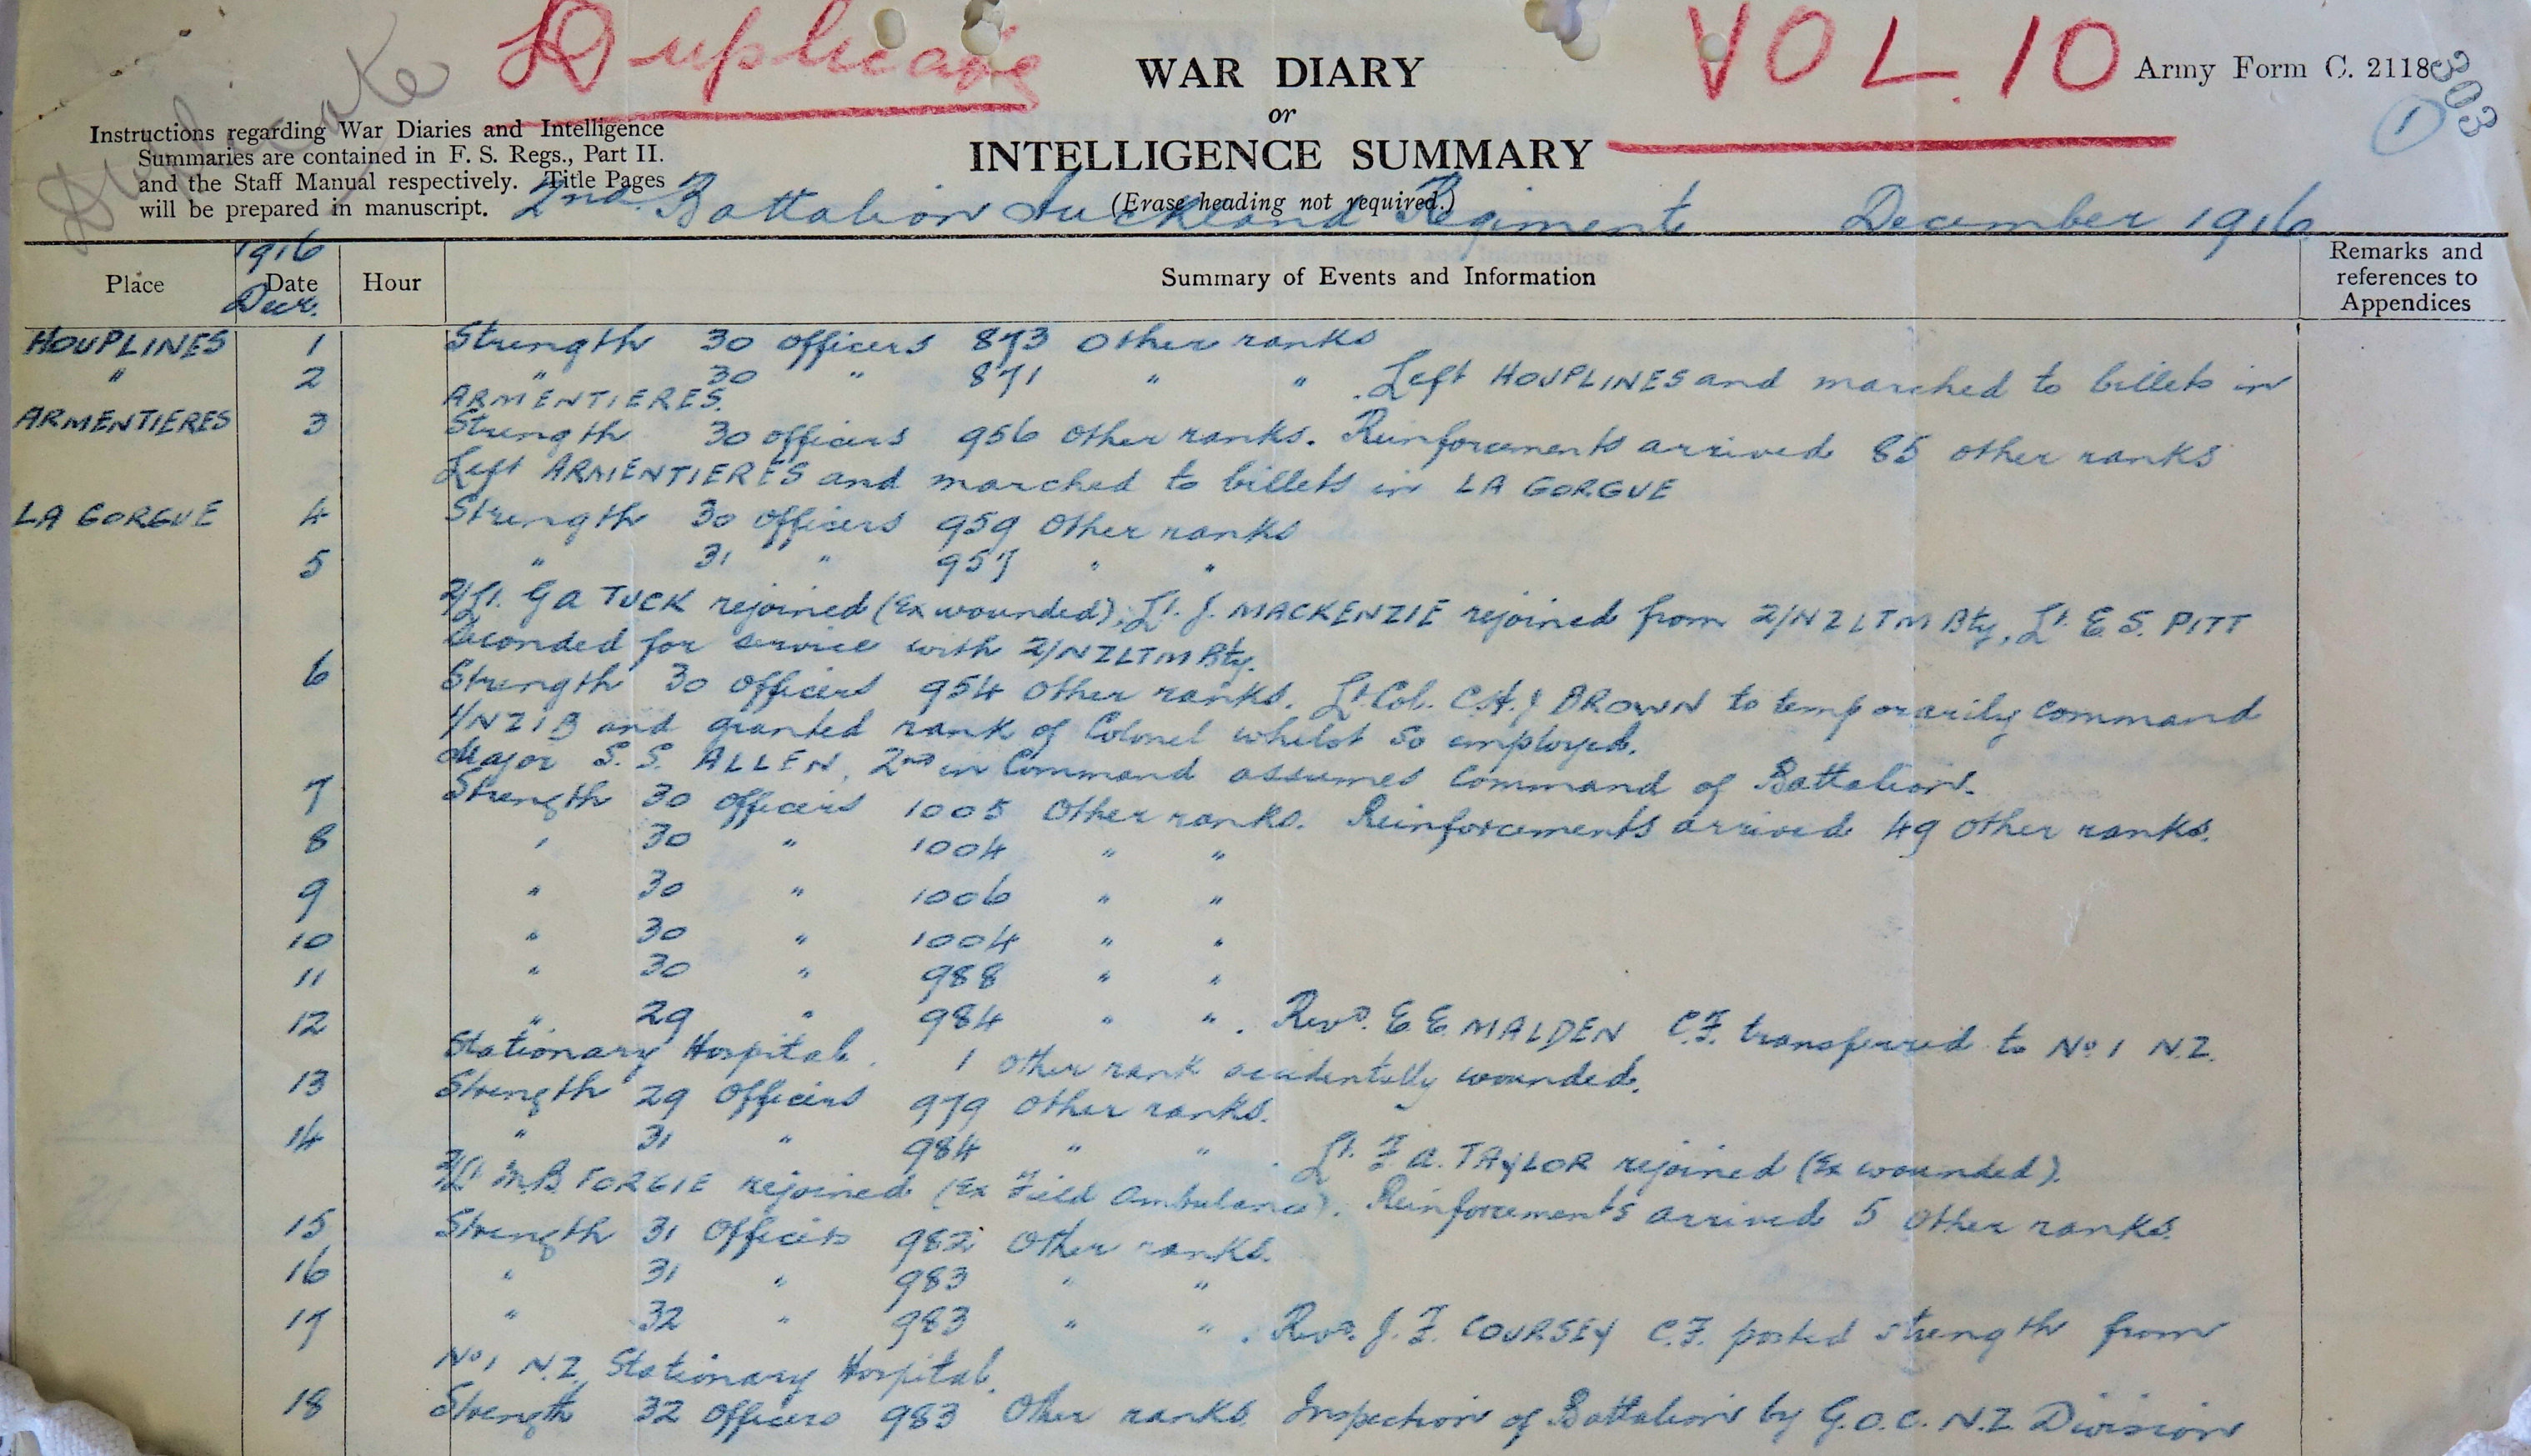 Duplicate
Duplicate
VOL. 10
Army Form C. 2118
303
1
WAR DIARY
or
INTELLIGENCE SUMMARY
(Erase heading not required.)
Instructions regarding War Diaries and Intelligence
Summaries are contained in F. S. Regs., Part II.
and the Staff Manual respectively. Title Pages
will be prepared in manuscript.
2nd Battalion Auckland Regiment December 1916
Place 1916 Date Decr. Hour Summary of Events and Information Remarks and references to Appendices
HOUPLINES 1 Strength 30 officers 873 other ranks
" 2 " 30 " 871 " " . Left HOUPLINES and marched to billets in
ARMENTIERES.
ARMENTIERES 3 Strength 30 officers 956 other ranks. Reinforcements arrived 85 other ranks
Left ARMENTIERES and marched to billets in LA GORGUE
LA GORGUE 4 Strength 30 officers 959 other ranks
5 " 31 " 957 " "
2/Lt. G A TUCK rejoined (Ex wounded), Lt. J. MACKENZIE rejoined from 2/NZLTM Bty, Lt. E. S. PITT
seconded for service with 2/NZLTM Bty.
6 Strength 30 officers 954 other ranks. Lt. Col. C.H.J BROWN to temporarily command
1/NZIB and granted rank of Colonel whilst so employed.
Major S. S. ALLEN, 2nd in Command assumes command of Battalion.
7 Strength 30 officers 1005 other ranks. Reinforcements arrived 49 other ranks.
8 " 30 " 1004 " "
9 " 30 " 1006 " "
10 " 30 " 1004 " "
11 " 30 " 988 " "
12 " 29 " 984 " " . Revd. E. E. MALDEN C.F. transferred to No. 1 N.Z.
Stationary Hospital. 1 other rank accidentally wounded.
13 Strength 29 Officers 979 other ranks.
14 " 31 " 984 " " . Lt. F A. TAYLOR rejoined (Ex wounded).
2/Lt M.B. FORGIE rejoined (Ex Field Ambulance). Reinforcements arrived 5 other ranks.
15 Strength 31 Officers 982 other ranks.
16 " 31 " 983 " "
17 " 32 " 983 " " . Revd. J. F. COURSEY C.F. posted strength from
No 1 N.Z. Stationary Hospital.
18 Strength 32 officers 983 other ranks. Inspection of Battalion by G.O.C. N.Z. Division